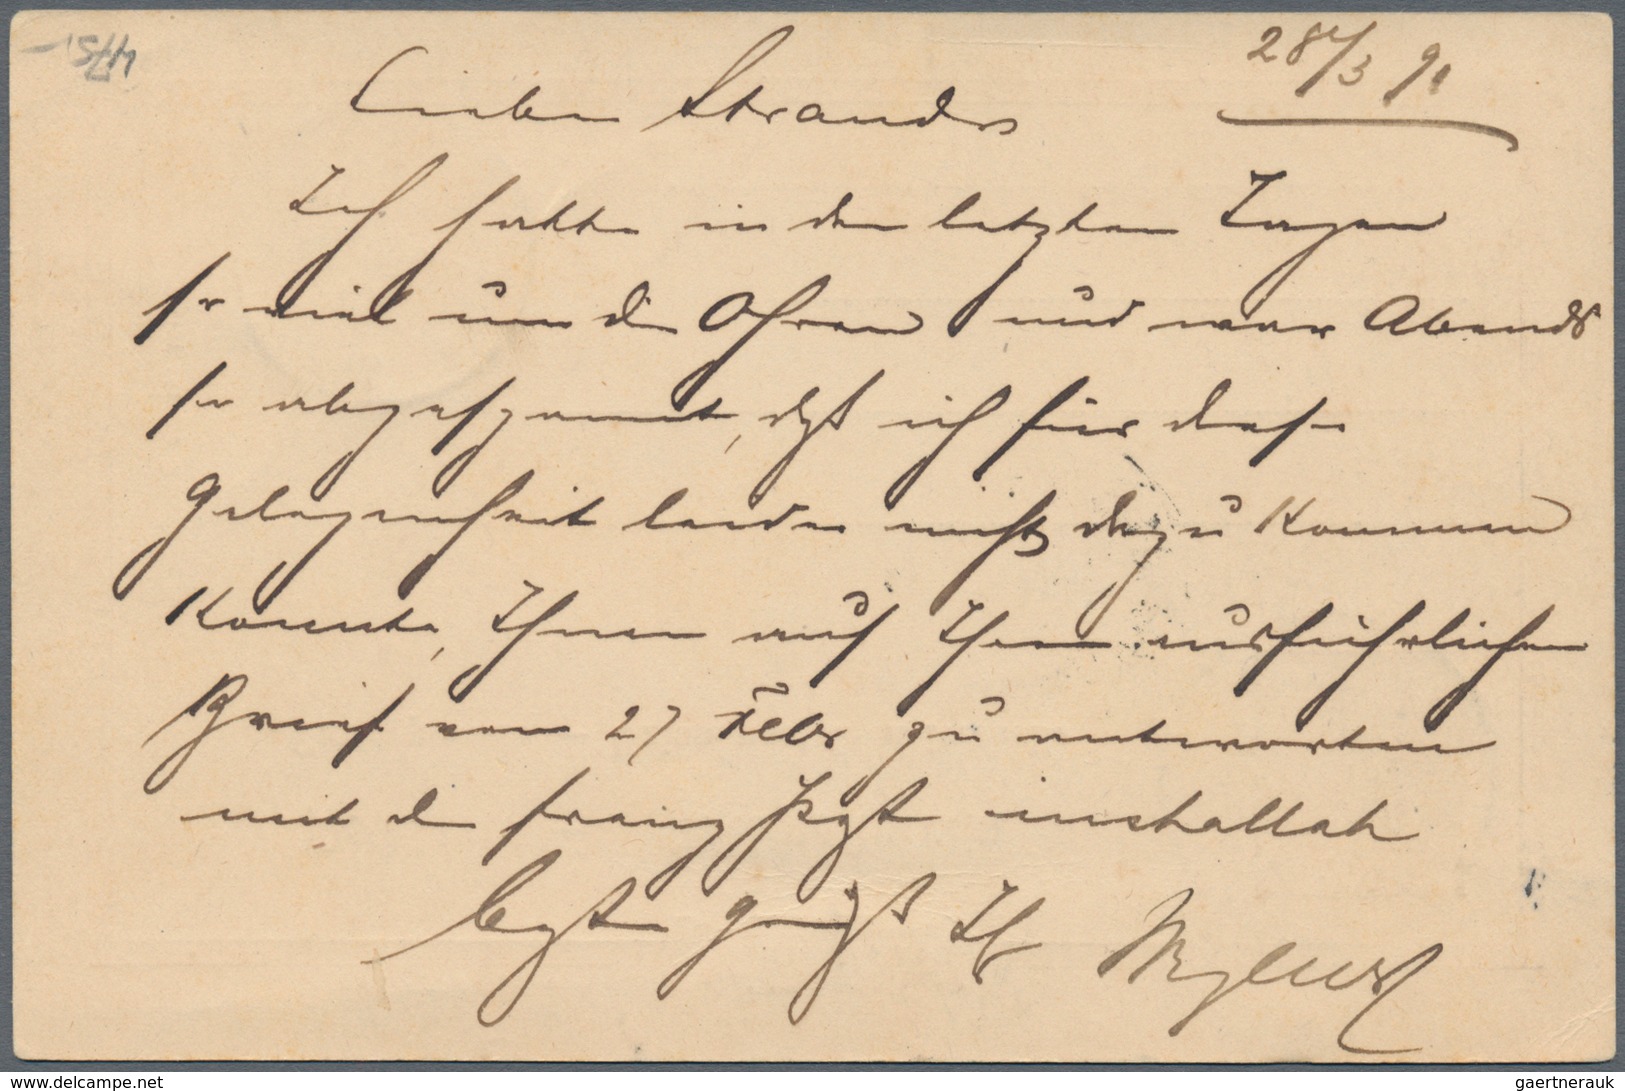 28/3 91
Lieber Strandes
Ich hatte in den letzten Tagen
so viel um die Ohren und war Abends
so abgespannt, dß ich für diese
Gelegenheit leider nicht dazu kommen
konnte, Ihnen auf Ihren ausführlichen
Brief vom 27 Febr zu antworten
mit d franz Pst inshallah
grüßt Ihr
www.delcampe.net
gaertnerauk